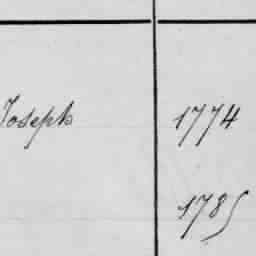 Joseph 1774
1785